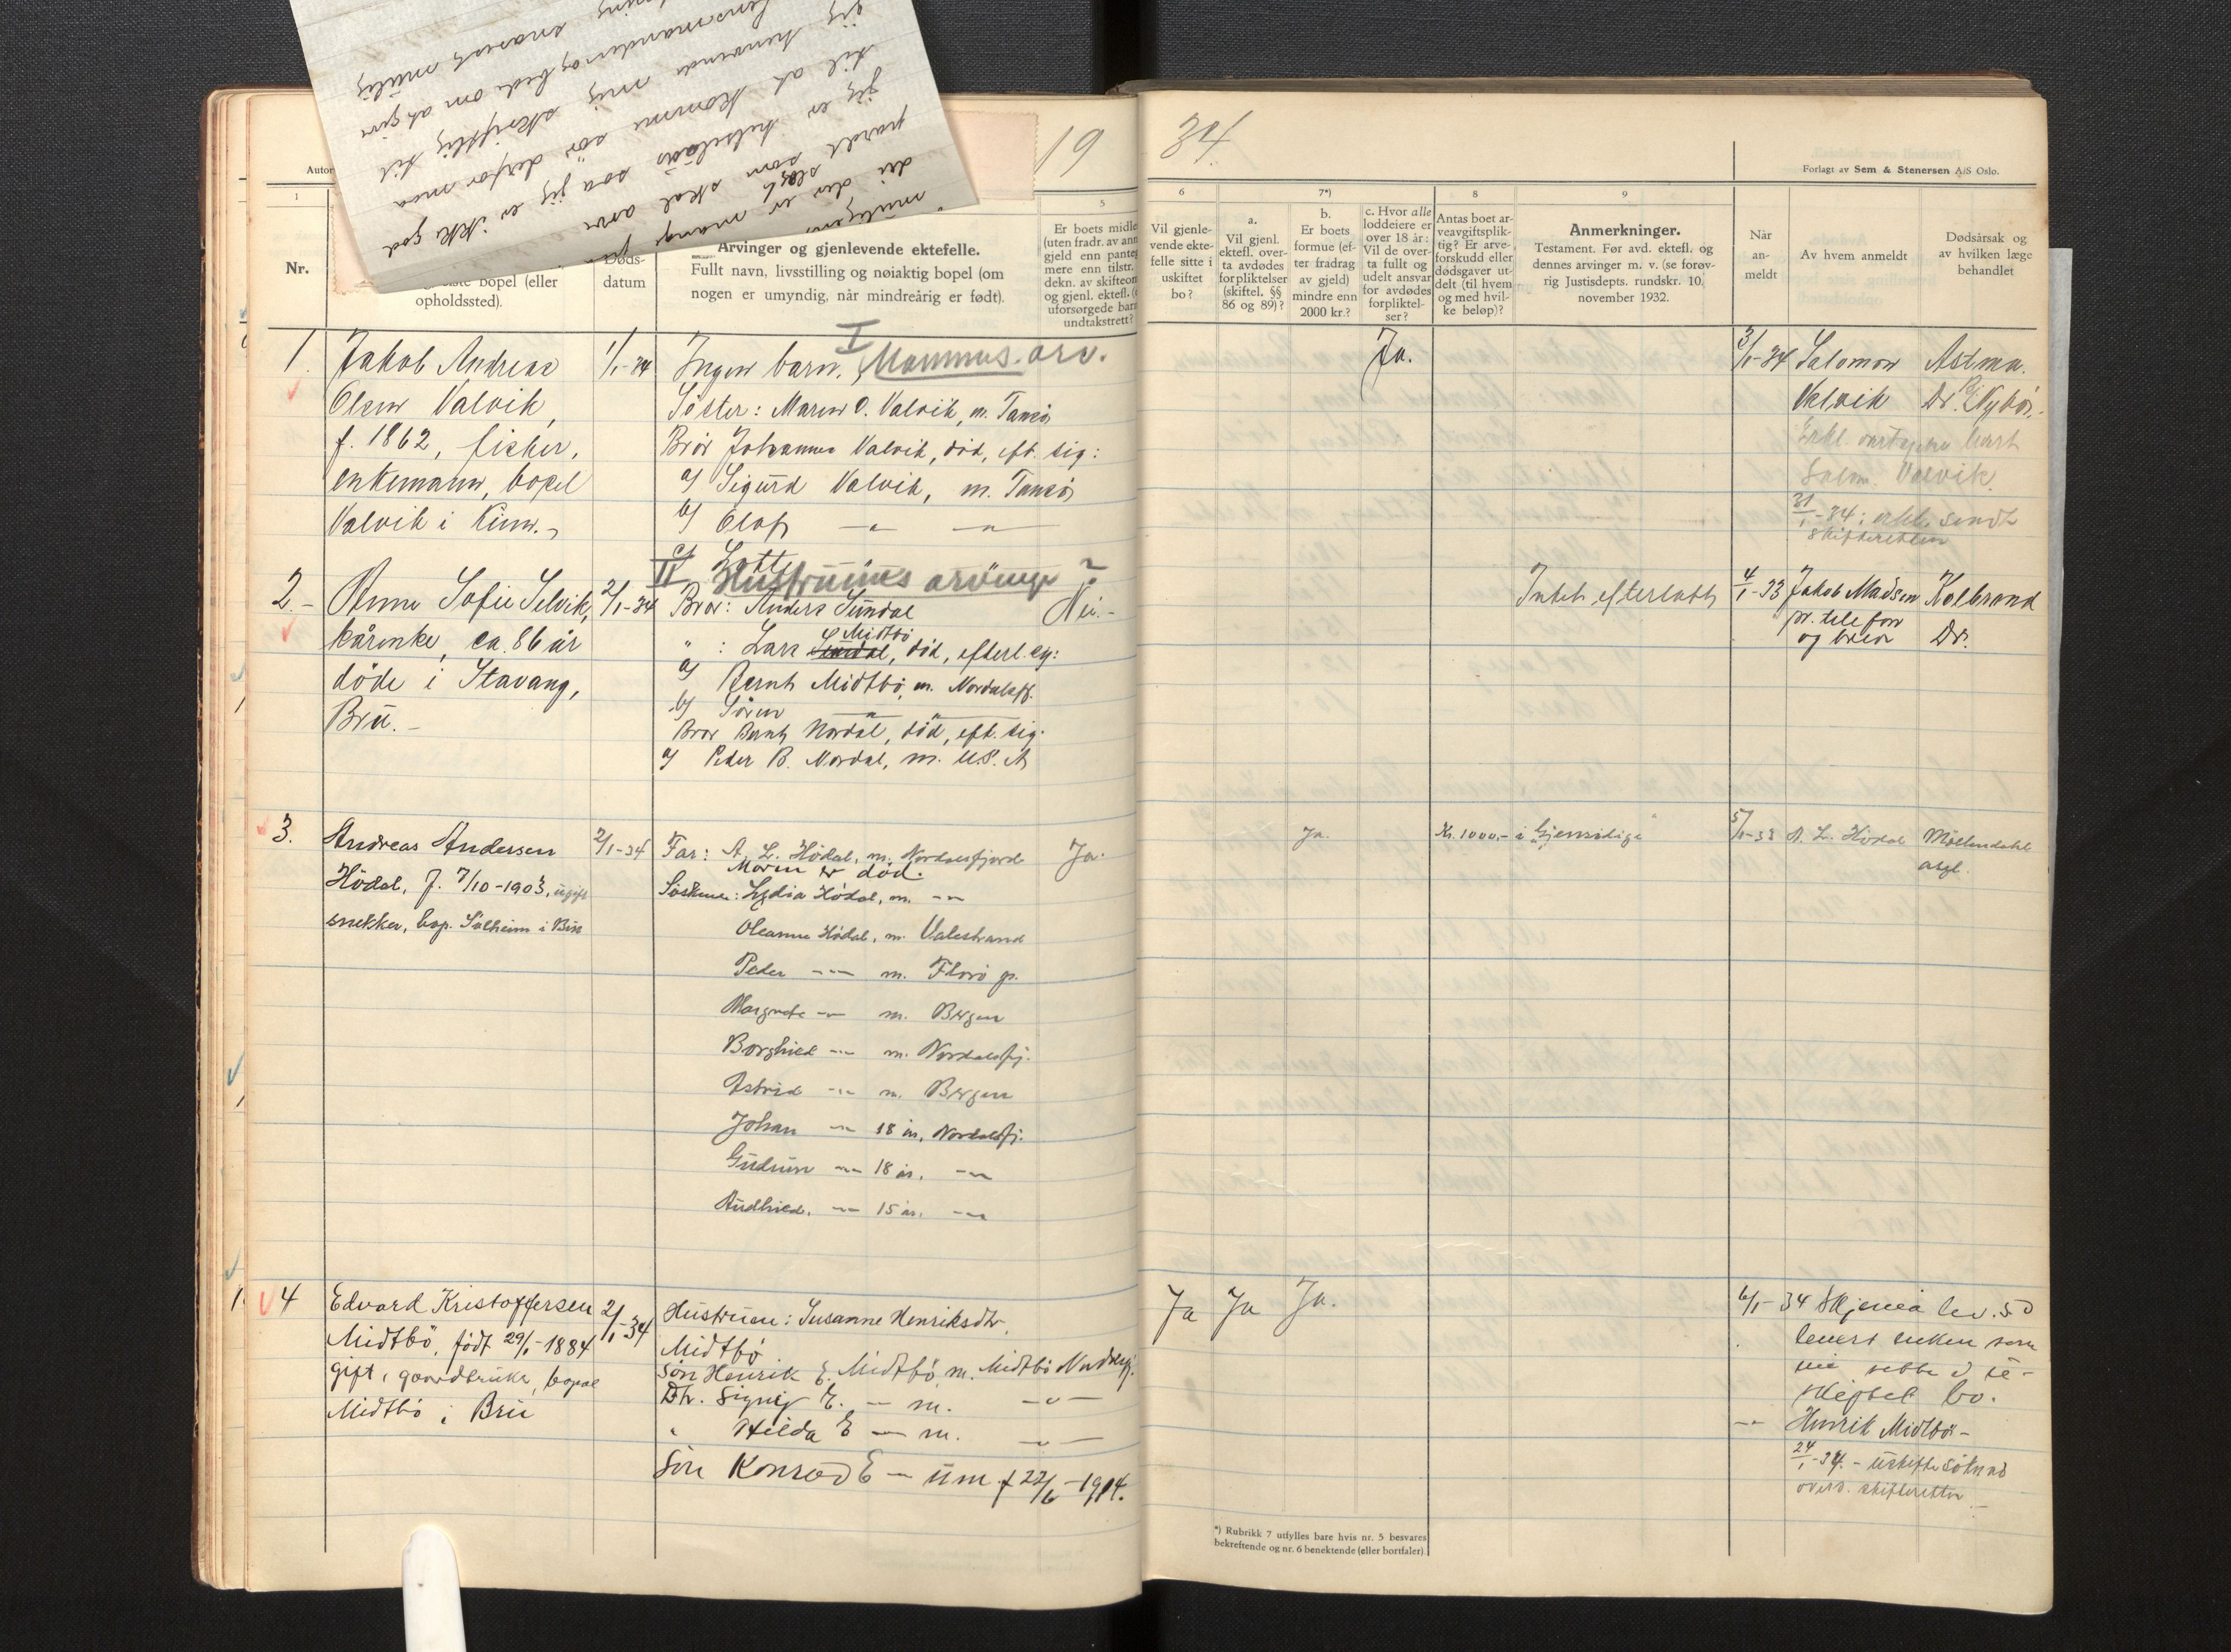 jeg
snarest mulig
lensmanden og bede om at give
henvende mig skriftlig til
til at komme sør derfor maa
jeg er helseløs saa jeg er ikke god
pardt som skal arve
di der er mange
slagt
muligens
19
34.
Autor
Forlagt av Sem & Stenersen A/S Oslo.
1
5
6
7*)
8
9
Nr.
bopel (eller
opholdssted).
Døds-
datum
Arvinger og gjenlevende ektefelle.
Fullt navn, livsstilling og nøiaktig bopel (om
nogen er umyndig, når mindreårig er født).
Er boets midle
(uten fradr. av ann
gjeld enn pante
mere enn tilstr.
dekn. av skifteom
og gjenl. ektefl.
uforsørgede barn
undtakstrett?
Vil gjenle-
vende ekte-
felle sitte i
uskiftet
bo?
a.
Vil gjenl.
ektefl. over-
ta avdødes
forpliktelser
(skiftel. §§
86 og 89)?
b.
Er boets
formue (ef-
ter fradrag
av gjeld)
mindre enn
2000 kr.?
c. Hvor alle
loddeiere er
over 18 år:
Vil de over-
ta fullt og
udelt ansvar
for avdødes
forpliktel-
ser?
Antas boet ar-
veavgiftsplik-
tig? Er arve-
forskudd eller
dødsgaver ut-
delt (til hvem
og med hvil-
ke beløp)?
Anmerkninger.
Testament. Før avd. ektefl. og
dennes arvinger m. v. (se forøv-
rig Justisdepts. rundskr. 10.
november 1932.
Når
an-
meldt
Av hvem anmeldt
Dødsårsak og
av hvilken læge
behandlet
1.
Jakob Andreas
Olsen Valvik,
f. 1862, fisker,
enkemann, bopel
Valvik i Kinn.
1/1-34
I
Ingen barn. Mannens arv.
Søster: Maren O. Valvik, m. Tansø
Bror Johannes Valvik, død, eft. sig:
a) Sigurd Valvik, m. Tansø
b) Olaf — " — — " —
c) Lotte
II Hustruens arvinge ?
Ja.
3/1-34
Salomon
Valvik
Erkl.
Salom. Valvik
31/1-34: erkl. sendt
skifteretten
Astma.
Dr. Nybø.
2.-
Anne Sofie Selvik,
kårenke, ca. 86 år
døde i Stavang,
Bru.-
2/1-34
Bror: Anders Sundal
" : Lars Sundal Midtbø, død, efterl. sig:
a) Bernt Midtbø, m. Nordalsfj.
b) Søren — " —
Bror Bernt Nordal, død, eft. sig.
a) Peder B. Nordal, m. U.S.A
Nei.-
Intet efterlatt
4/1-33
Jakob Madsen
pr. telefon
og brev
Kolbrand
Dr.
3.
Andreas Andersen
Hødal, f. 7/10-1903, ugift
snekker, bop. Solheim i Bru
2/1-34
Far: A. L. Hødal, m. Nordalsfjord
Moren er død.
Søskene: Lydia Hødal, m. -"-
Oleanne Hødal, m. Valestrand
Peder -"- m. Florø p.
Margrete -"- m. Bergen
Borghild -"- m. Nordalsfj.
Astrid -"- m. Bergen
Johan -"- 18 år, Nordalsfj.
Gudrun -"- 18 år. -"-
Audhild. -"- 15 år. -"-
Ja.
Ja.
Kr. 1000,- i "Gjensidige"
5/1-33
A. L. Hødal
Møllendahl
asyl.
4
Edvard Kristoffersen
Midtbø, født 29/1-1884
gift, gaardbruker, bopæl
Midtbø i Bru
2/1-34
Hustruen: Susanne Henriksdtr.
Midtbø
Søn Henrik E. Midtbø m. Midtbø Nordalsfj.
Dtr. Signy E. — m. -"-
" Hilda E — m. -"-
Søn Konrad E — um. f 22/6-1914.
Ja Ja Ja.
6/1-34
Skjema lev. 50
levert enken som
vil sitte i u-
skiftet bo.
-"- Henrik Midtbø-
24/1-34.- uskiftesøknad
overs. skifteretten.-
*) Rubrikk 7 utfylles bare hvis nr. 5 besvares
bekreftende og nr. 6 benektende (eller bortfaler).